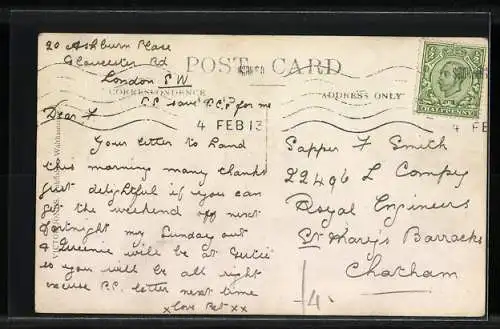 20 Ashburn Place
Gloucester Rd
London S W
POST CARD
CORRESPONDENCE
ADDRESS ONLY
P.S. save P.C's for me
4 FEB 13
4 FEB
Dear F
Your letter to hand
this morning many thanks
just delightful if you can
get the weekend off next
fortnight my Sunday out
& Queenie will be at
so you will be all right
excuse P.C. letter next time
x Love Bet xx
Sapper F Smith
22496 L Compy
Royal Engineers
St Mary's Barracks
Chatham
1/-